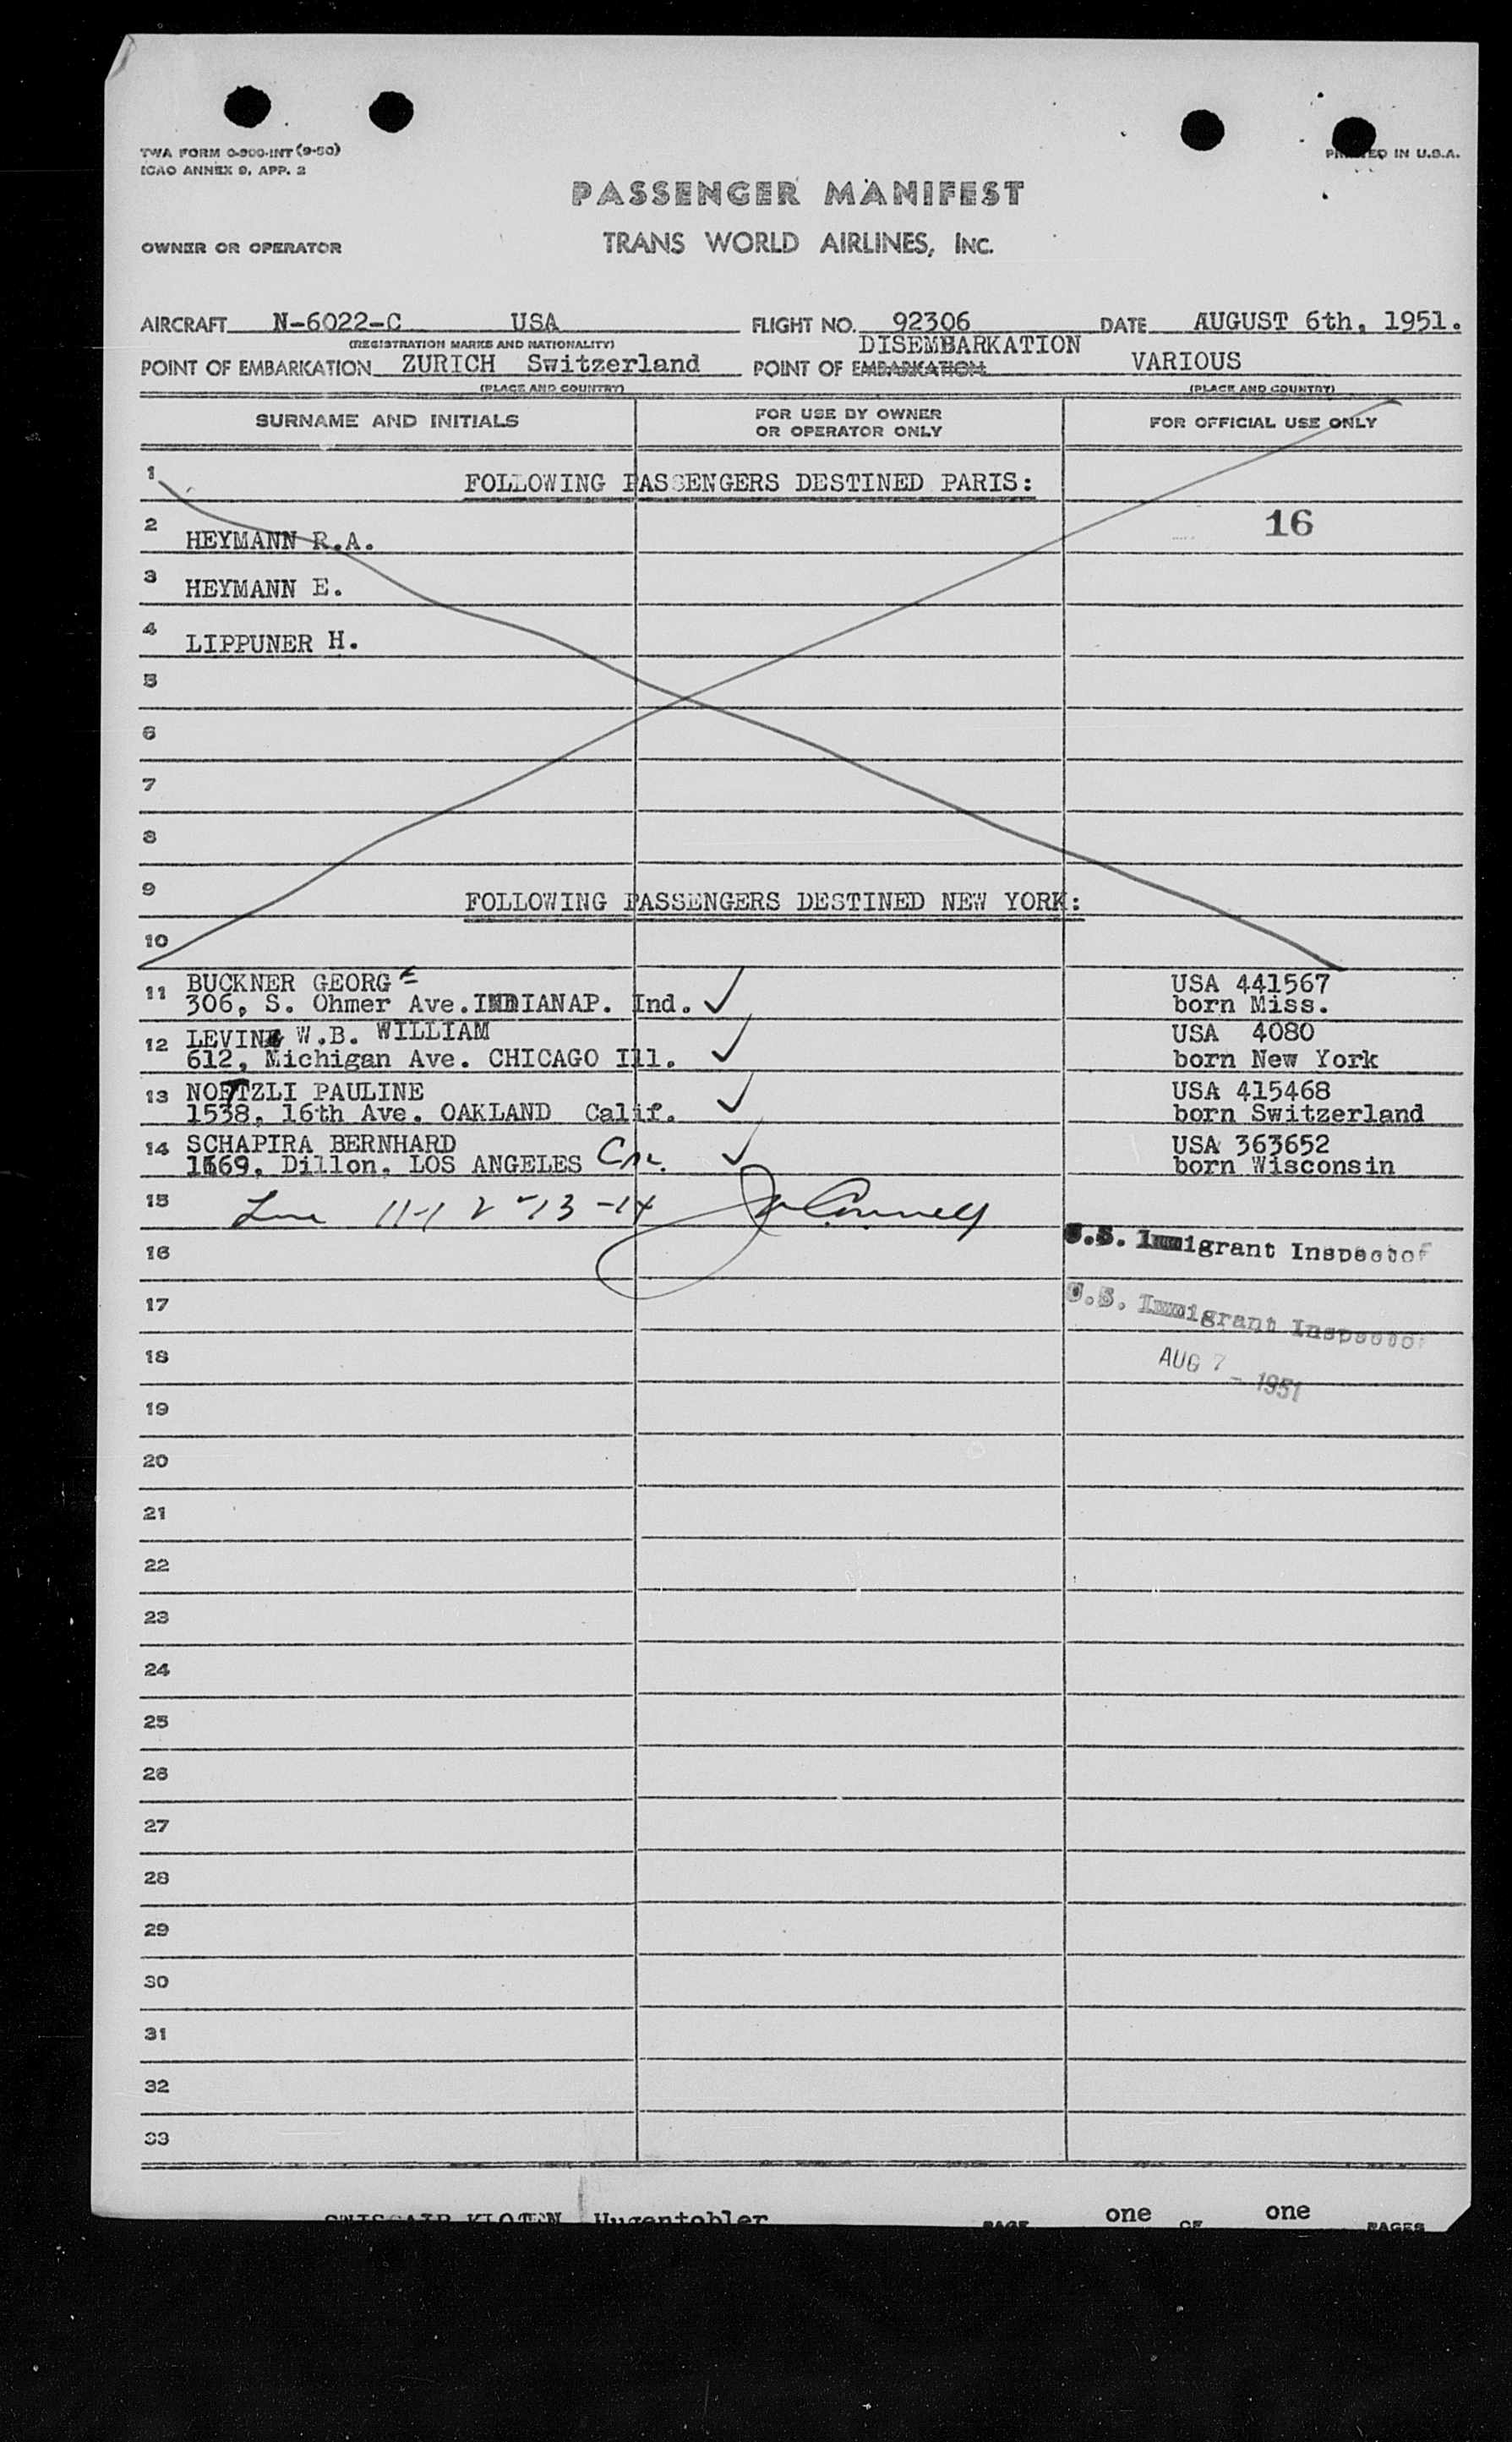 TWA FORM 0-900-INT (9-50)
ICAO ANNEX 9, APP. 2
PRINTED IN U.S.A.
PASSENGER MANIFEST
OWNER OR OPERATOR TRANS WORLD AIRLINES, INC.
AIRCRAFT N-6022-C USA FLIGHT NO. 92306 DATE AUGUST 6th, 1951.
(REGISTRATION MARKS AND NATIONALITY) DISEMBARKATION
POINT OF EMBARKATION ZURICH Switzerland POINT OF EMBARKATION VARIOUS
(PLACE AND COUNTRY) (PLACE AND COUNTRY)
SURNAME AND INITIALS FOR USE BY OWNER OR OPERATOR ONLY FOR OFFICIAL USE ONLY
1 FOLLOWING PASSENGERS DESTINED PARIS:
2 HEYMANN R.A. 16
3 HEYMANN E.
4 LIPPUNER H.
5
6
7
8
9 FOLLOWING PASSENGERS DESTINED NEW YORK:
10
11 BUCKNER GEORGE USA 441567
306, S. Ohmer Ave. INDIANAP. Ind. born Miss.
12 LEVINE W.B. WILLIAM USA 4080
612, Michigan Ave. CHICAGO Ill. born New York
13 NOETZLI PAULINE USA 415468
1538, 16th Ave. OAKLAND Calif. born Switzerland
14 SCHAPIRA BERNHARD USA 363652
1669, Dillon, LOS ANGELES born Wisconsin
15 Line 11-12-13-14
16 U.S. Immigrant Inspector
17 U.S. Immigrant Inspector
18 AUG 7 - 1951
19
20
21
22
23
24
25
26
27
28
29
30
31
32
33
SWISSAIR KLOTEN Hugentobler PAGE one OF one PAGES